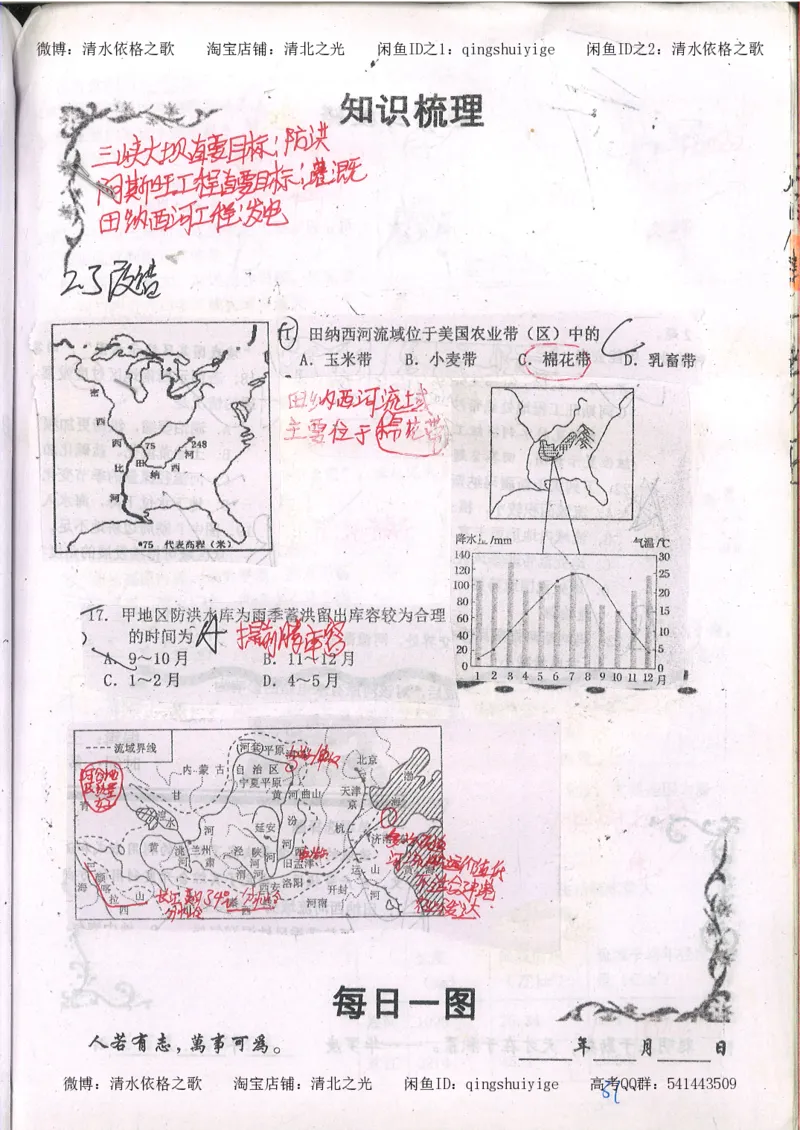 微博：清水依格之歌 淘宝店铺：清北之光 闲鱼ID之1：qingshuiyige 闲鱼ID之2：清水依格之歌
知识梳理
三峡大坝首要目标：防洪
阿斯旺工程首要目标：灌溉
田纳西河工程：发电
密
西
西
比
河
75
248
田
纳
西
河
*75 代表高程（米）
1. 田纳西河流域位于美国农业带（区）中的 C
A. 玉米带 B. 小麦带 C. 棉花带 D. 乳畜带
田纳西河流域
主要位于棉花带
甲
降水量/mm 气温/℃
140
120
100
80
60
40
20
0
30
25
20
15
10
5
0
1 2 3 4 5 6 7 8 9 10 11 12 月
17. 甲地区防洪水库为雨季蓄洪留出库容较为合理
的时间为 A 提前腾库容
A. 9～10 月 B. 11～12 月
C. 1～2 月 D. 4～5 月
流域界线
河套平原
北京
内 蒙 古 自 治 区
宁夏平原
天津
渤
海
青
海
甘
肃
湟水
黄
河
洮
河
兰州
延安
黄 河
汾
河
京
杭
运
河
济南
山
泾
河
渭
河
陕
西
西安
旧孟津
洛阳
开封
河南
巴
颜
喀
拉
山
秦
每日一图
人若有志，萬事可為。
年 月 日
微博：清水依格之歌 淘宝店铺：清北之光 闲鱼ID：qingshuiyige 高考QQ群：541443509